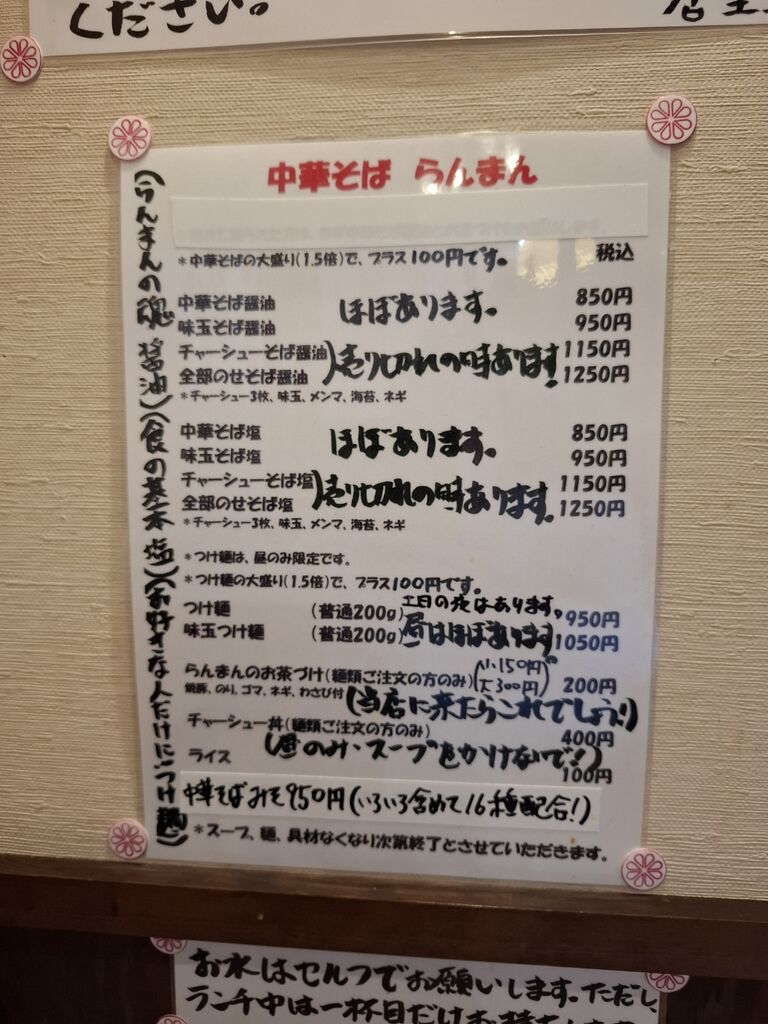 ください。
店主
中華そば らんまん
*中華そばの大盛り(1.5倍)で、プラス100円です。
税込
中華そば醤油 ほぼあります。 850円
味玉そば醤油 950円
チャーシューそば醤油 1150円
全部のせそば醤油 )売り切れの時あります! 1250円
*チャーシュー3枚、味玉、メンマ、海苔、ネギ
中華そば塩 ほぼあります。 850円
味玉そば塩 950円
チャーシューそば塩 1150円
全部のせそば塩 )売り切れの時あります。 1250円
*チャーシュー3枚、味玉、メンマ、海苔、ネギ
*つけ麺は、昼のみ限定です。
*つけ麺の大盛り(1.5倍)で、プラス100円です。
土日の夜はあります。
つけ麺 (普通200g) 950円
味玉つけ麺 (普通200g) 昼はほぼあります 1050円
らんまんのお茶づけ(麺類ご注文の方のみ) (小150円 大300円) 200円
焼豚、のり、ゴマ、ネギ、わさび付 (当店に来たらこれでしょう!)
チャーシュー丼(麺類ご注文の方のみ) 400円
ライス (昼のみ・スープをかけないで!) 100円
中華そばみそ950円(いろいろ含めて16種配合!)
*スープ、麺、具材なくなり次第終了とさせていただきます。
(らんまんの魂 醤油)(食の基本 塩)(お好きな人だけに!つけ麺)
お水はセルフでお願いします。ただし、
ランチ中は一杯目だけお